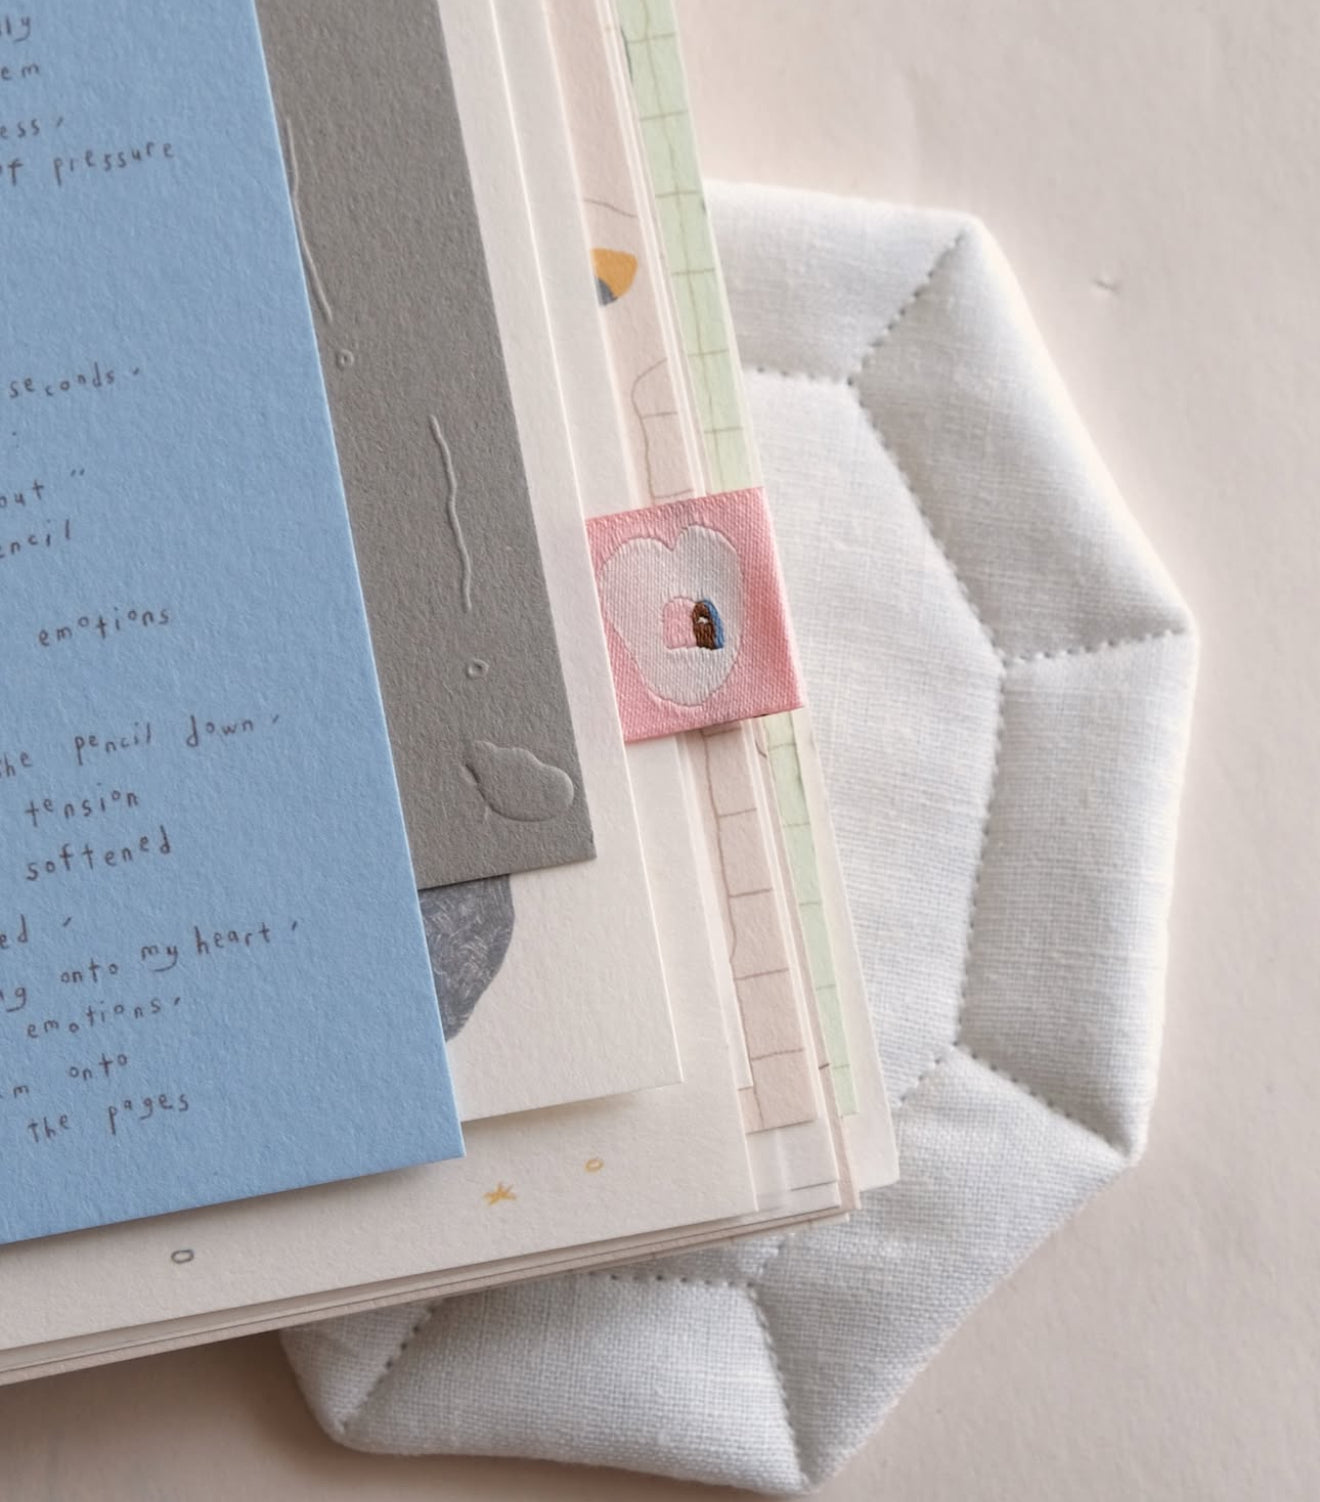 of pressure
seconds,
emotions
the pencil down,
tension
softened
onto my heart,
emotions,
onto
the pages